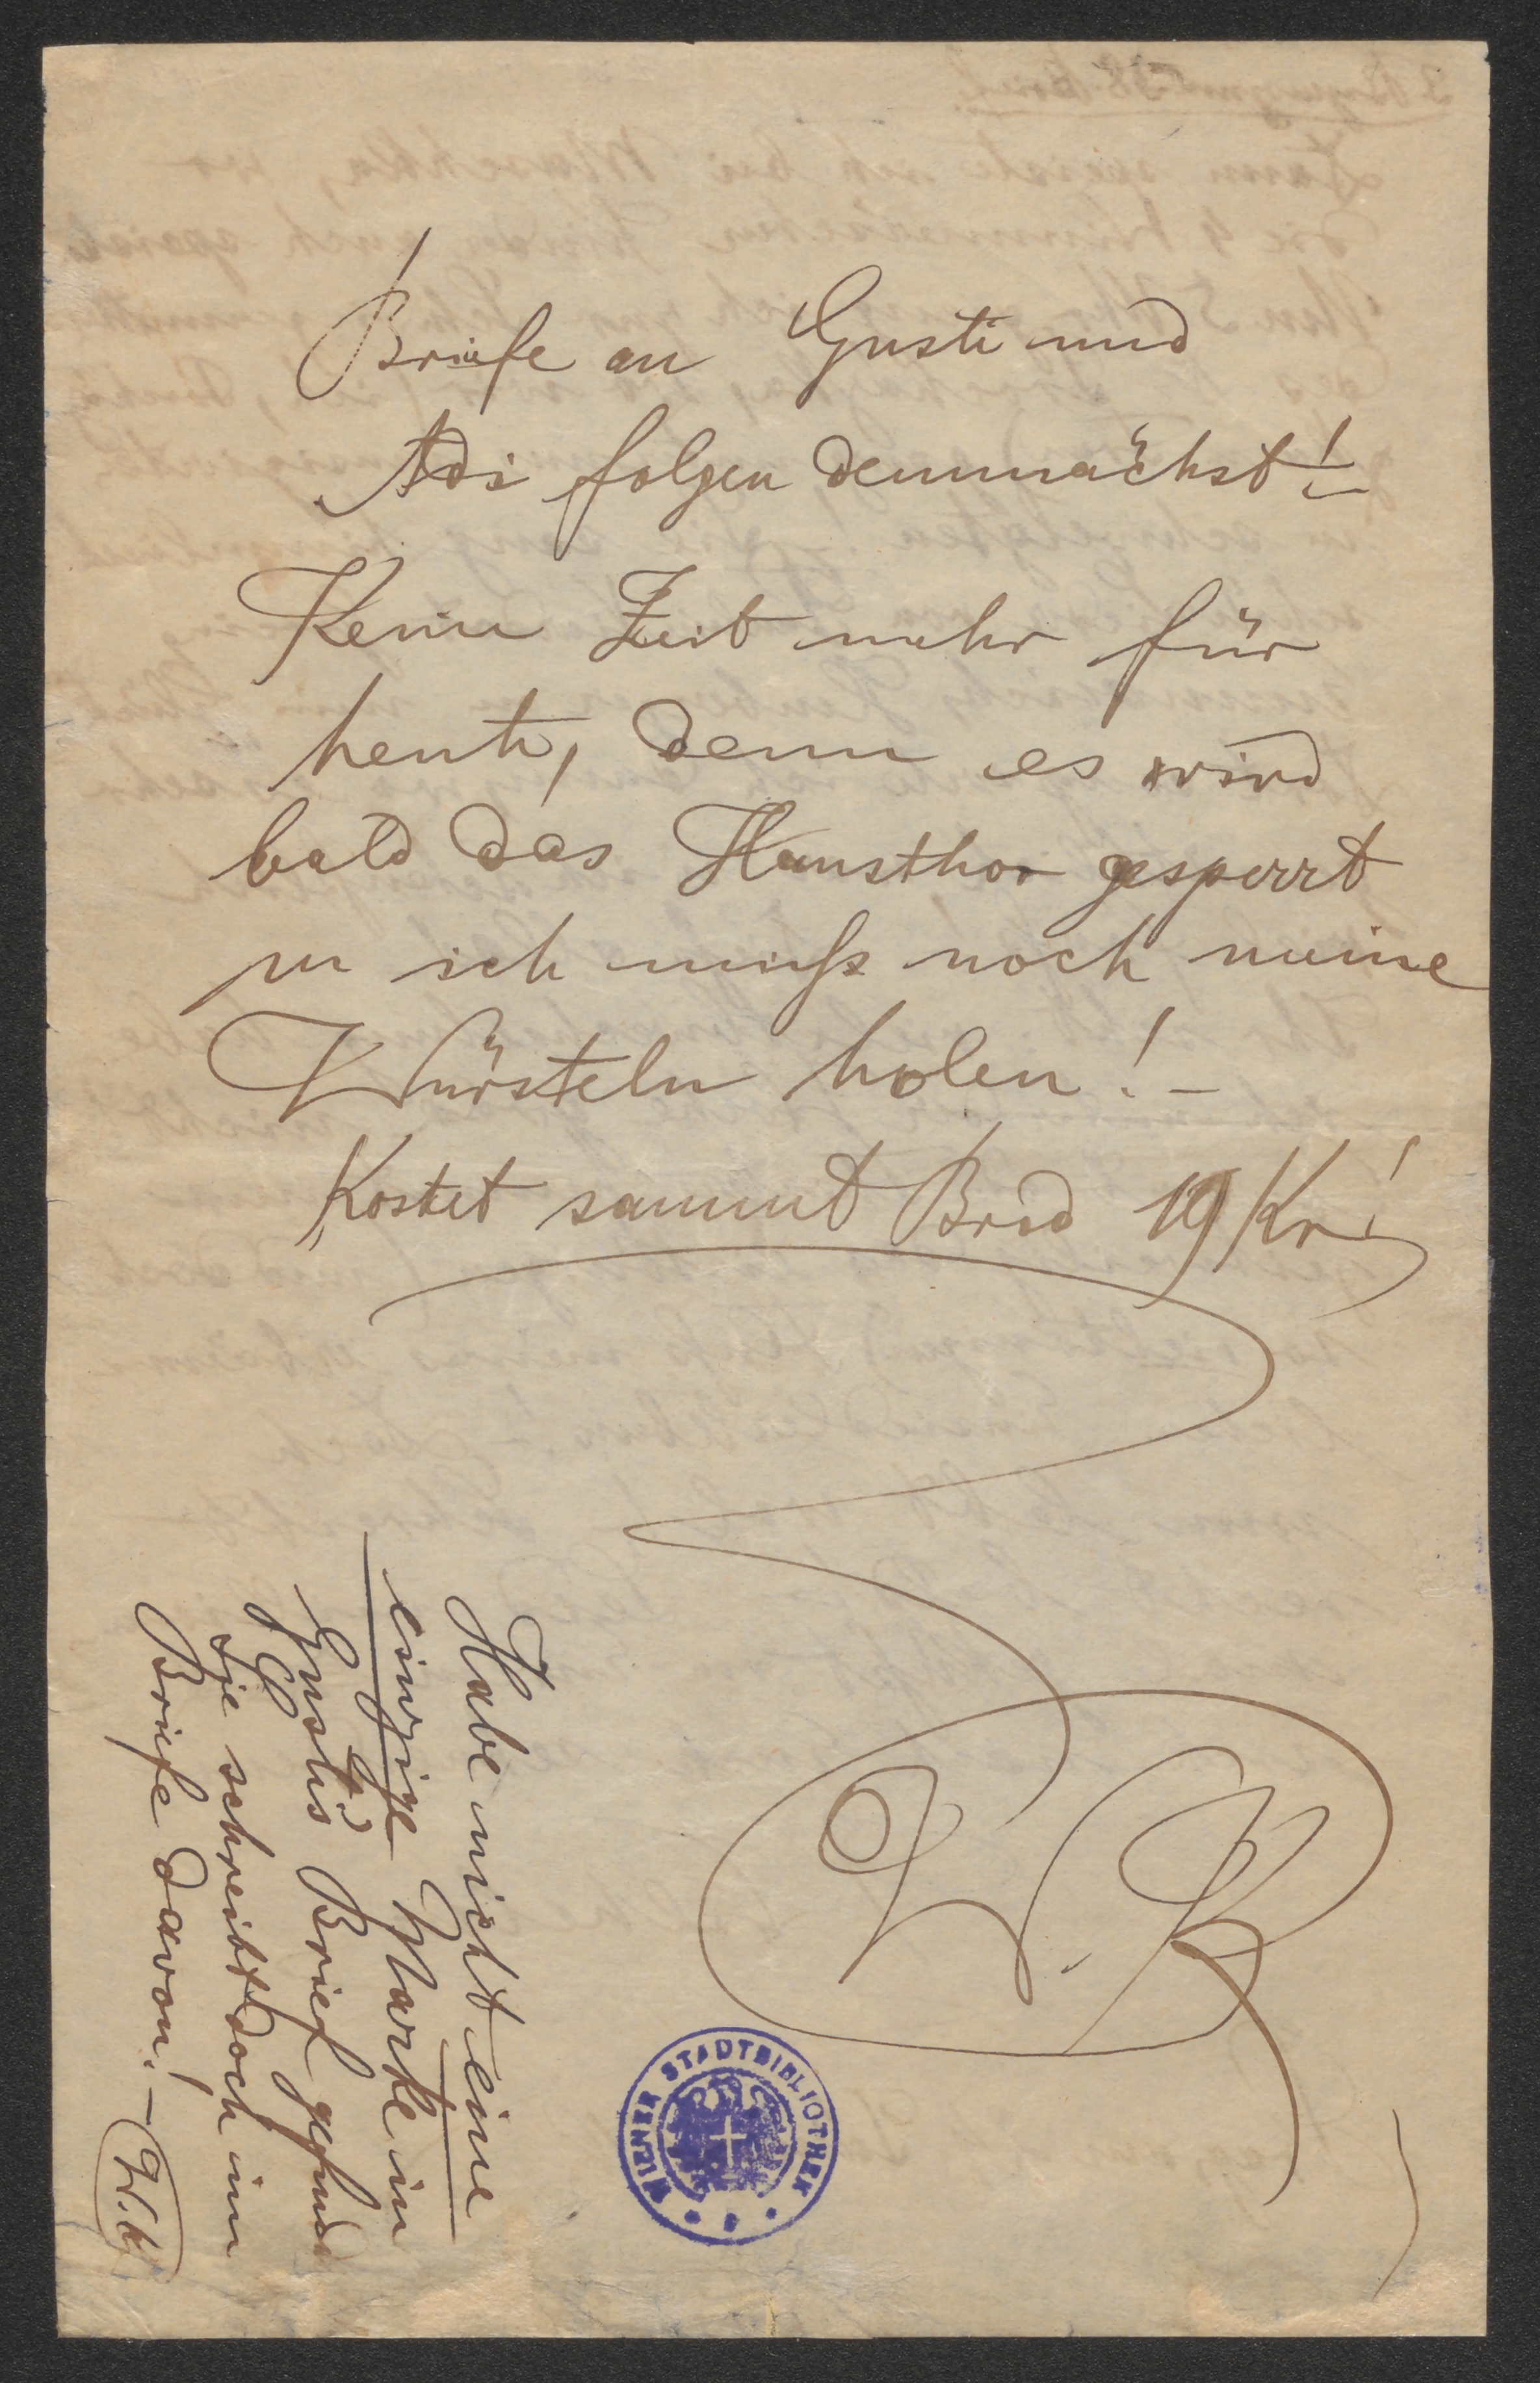 Briefe an Gusti und
Adi folgen demnächst!
Keine Zeit mehr für
heute, denn es wird
bald das Hausthor gesperrt
u ich muß noch meine
Würsteln holen! –
Kostet sammt Brod 19 Kr!
W. K
Habe nicht eine
einzige Marke in
Gustis Brief gefund
Sie schreibt doch im
Briefe davon! –
W. K
WIENER STADTBIBLIOTHEK